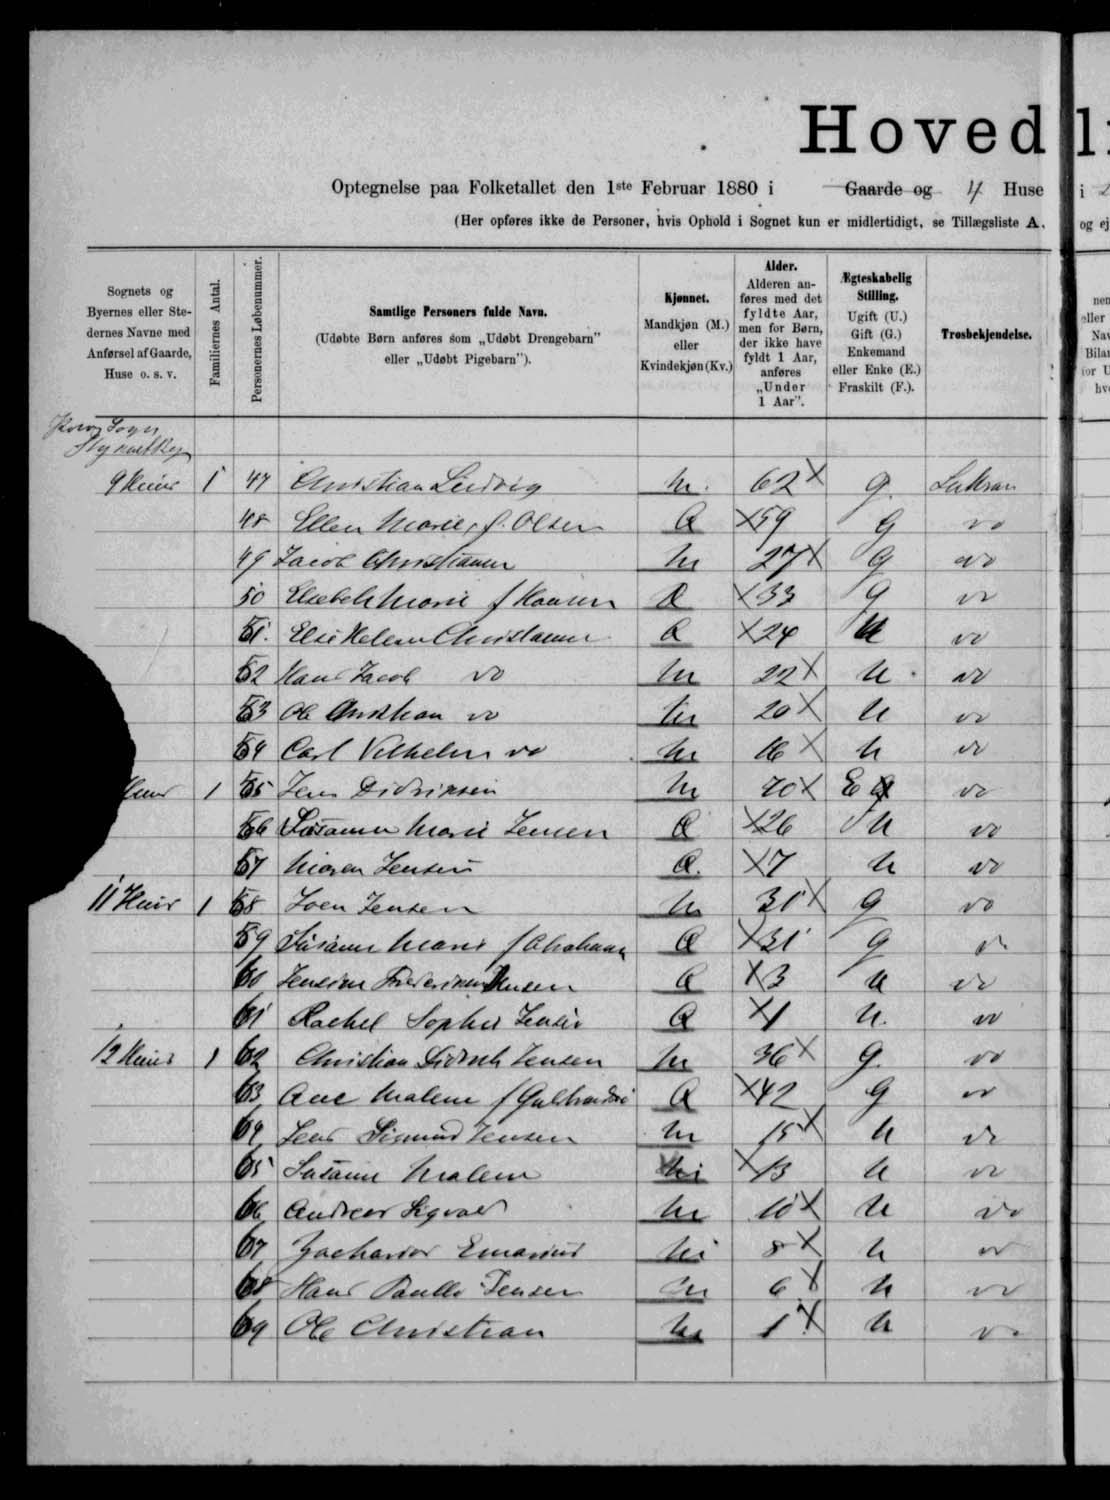 Hoved
li
Optegnelse paa Folketallet den 1ste Februar 1880 i Gaarde og 4 Huse i
(Her opføres ikke de Personer, hvis Ophold i Sognet kun er midlertidigt, se Tillægsliste A. og ej
Sognets og Byernes eller Stedernes Navne med Anførsel af Gaarde, Huse o. s. v.
Familiernes Antal.
Personernes Løbenummer.
Samtlige Personers fulde Navn.
(Udøbte Børn anføres som „Udøbt Drengebarn" eller „Udøbt Pigebarn").
Kjønnet.
Mandkjøn (M.) eller Kvindekjøn (Kv.)
Alder.
Alderen anføres med det fyldte Aar, men for Børn, der ikke have fyldt 1 Aar, anføres „Under 1 Aar".
Ægteskabelig Stilling.
Ugift (U.) Gift (G.) Enkemand eller Enke (E.) Fraskilt (F.).
Trosbekjendelse.
Sogn
9 Huus 1 47 Christian Ludvig M. 62 X G.
48 Ellen Marie, f. Olsen Q X 59 G do
49 Jacob Christiansen M 27 X G do
50 Elsebeth Marie f Hansen Q X 33 G do
51. Else Helene Christiansen Q X 24 U do
52 Hans Jacob do M 22 X U do
53 Ole Christian do M 20 X U do
54 Carl Vilhelm do M 16 X U do
Huus 1 55 Jens Didriksen M 70 X E do
56 Susanne Marie Jensen Q X 26 U do
57 Maren Jensen Q. X 7 U do
11 Huus 1 58 Joen Jensen M 31 X G do
59 Susanne Marie f Abraham Q X 31 G do
60 Jensine Frederikke Jensen Q X 3 U do
61 Rachel Sophie Jensen Q X 1 U. do
12 Huus 1 62 Christian Didrich Jensen M 36 X G. do
63 Ane Malene f Q X 42 G do
64 Jens Sigmund Jensen M 15 X U do
65 Susanne Malene X 13 U do
66 Andreas Sigvald M 10 X U do
67 Zacharias Emarius M 8 X U do
68 Hans Paulli Jensen M 6 X U do
69 Ole Christian M 1 X U do